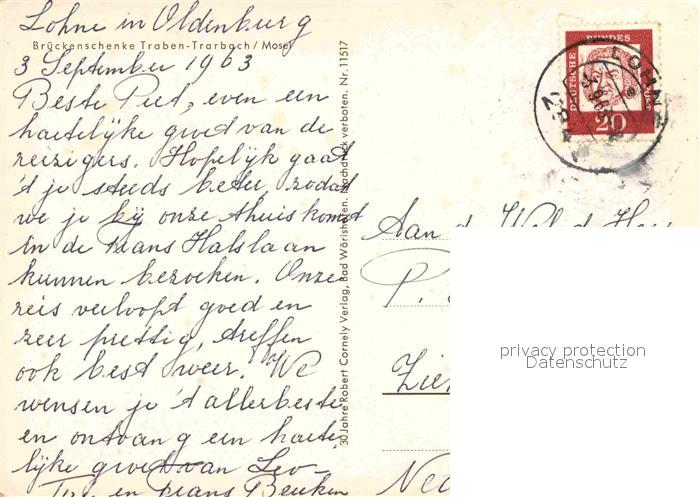 Lohne in Oldenburg
Brückenschenke Traben-Trarbach / Mosel
3 September 1963
Beste Piet, even een
hartelijke groet van de
reizigers. Hopelijk gaat
't je steeds beter, zodat
we je bij onze thuiskomst
in de Frans Halslaan
kunnen bezoeken. Onze
reis verloopt goed en
zeer prettig, treffen
ook best weer. We
wensen je 't allerbeste
en ontvang een harte-
lijke groet van Leo
en Frans Beuken
30 Jahre Robert Cornely Verlag, Bad Wörishofen. Nachdruck verboten. Nr. 11517
DEUTSCHE BUNDESPOST
20
LOHNE
Aan de Wel.d. Heer
P.
Zie
Ne
privacy protection
Datenschutz